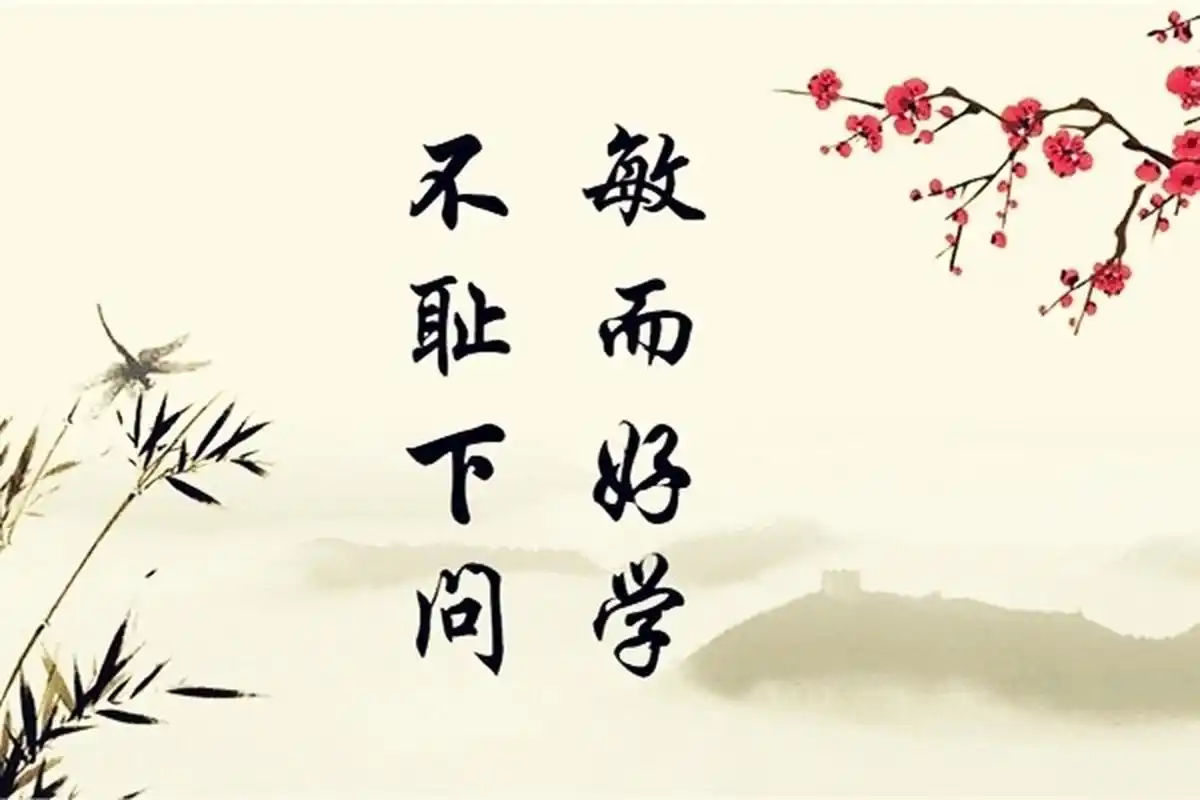 敏而好学
不耻下问